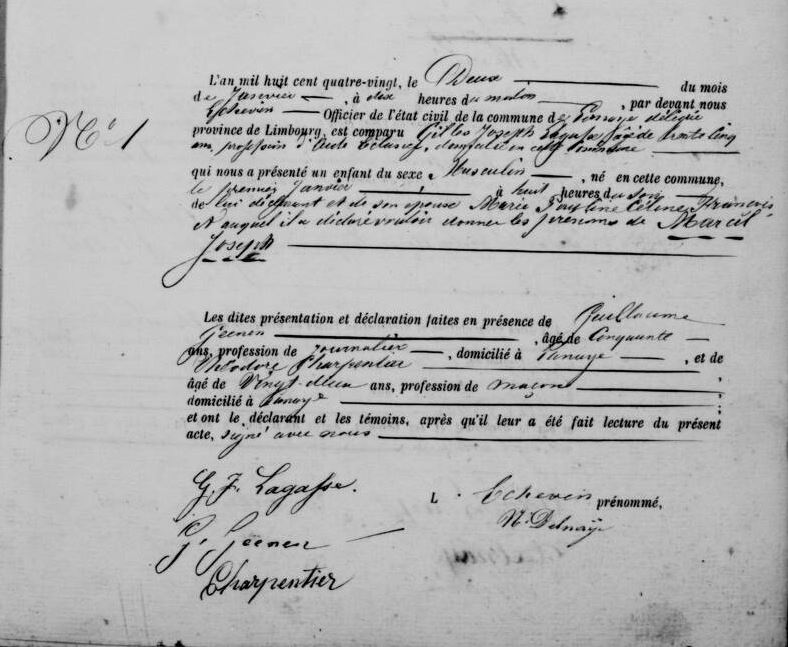 L'an mil huit cent quatre-vingt, le Deux du mois
de Janvier, à dix heures du matin, par devant nous
Echevin Officier de l'état civil de la commune de délégué
N° 1
province de Limbourg, est comparu Gilles Joseph Lagasse âgé de trente cinq
ans, profession d' Ecluse, domicilié en cette commune
qui nous a présenté un enfant du sexe Masculin, né en cette commune,
le premier Janvier à huit heures du soir
de lui déclarant et de son épouse Marie Pauline Céline François
et auquel il a déclaré vouloir donner les prénoms de Marcel
Joseph
Les dites présentation et déclaration faites en présence de Guillaume
Geenen, âgé de Cinquante
ans, profession de journalier, domicilié à Lanaye, et de
Théodore Charpentier,
âgé de Vingt deux ans, profession de maçon,
domicilié à Lanaye;
et ont le déclarant et les témoins, après qu'il leur a été fait lecture du présent
acte, signé avec nous
G. J. Lagasse.
L'Echevin prénommé,
N. Delnaye
G. Geenen
Charpentier